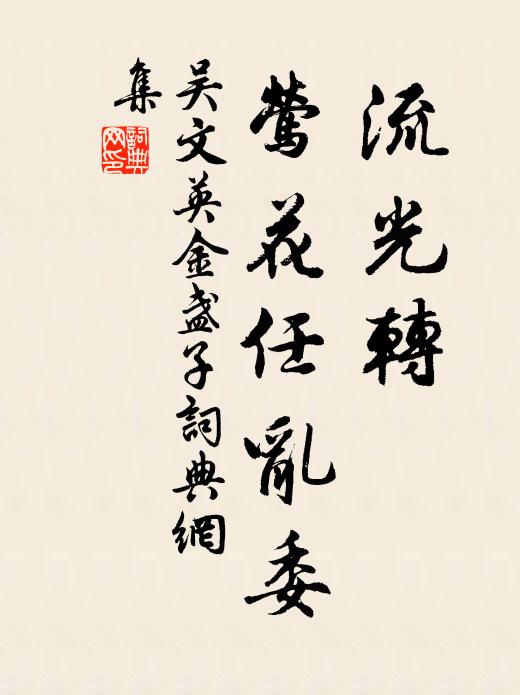 流光轉
鶯花任亂委
吴文英金盞子詞典網
集
詞典網印